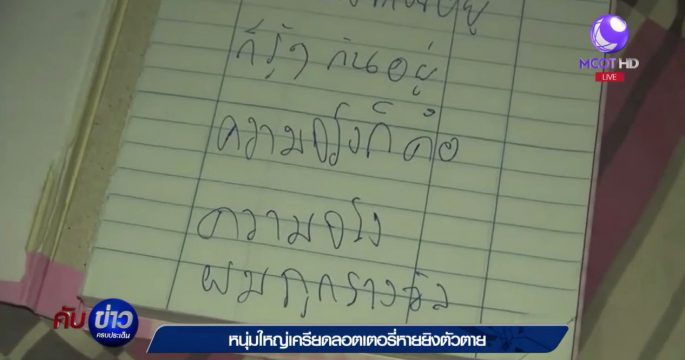 MCOT HD
LIVE
ก็รู้ๆ กันอยู่
ความจริงก็คือ
ความจริง
ผมถูกรางวัล
คับข่าว
ครบประเด็น
หนุ่มใหญ่เครียดลอตเตอรี่หายยิงตัวตาย